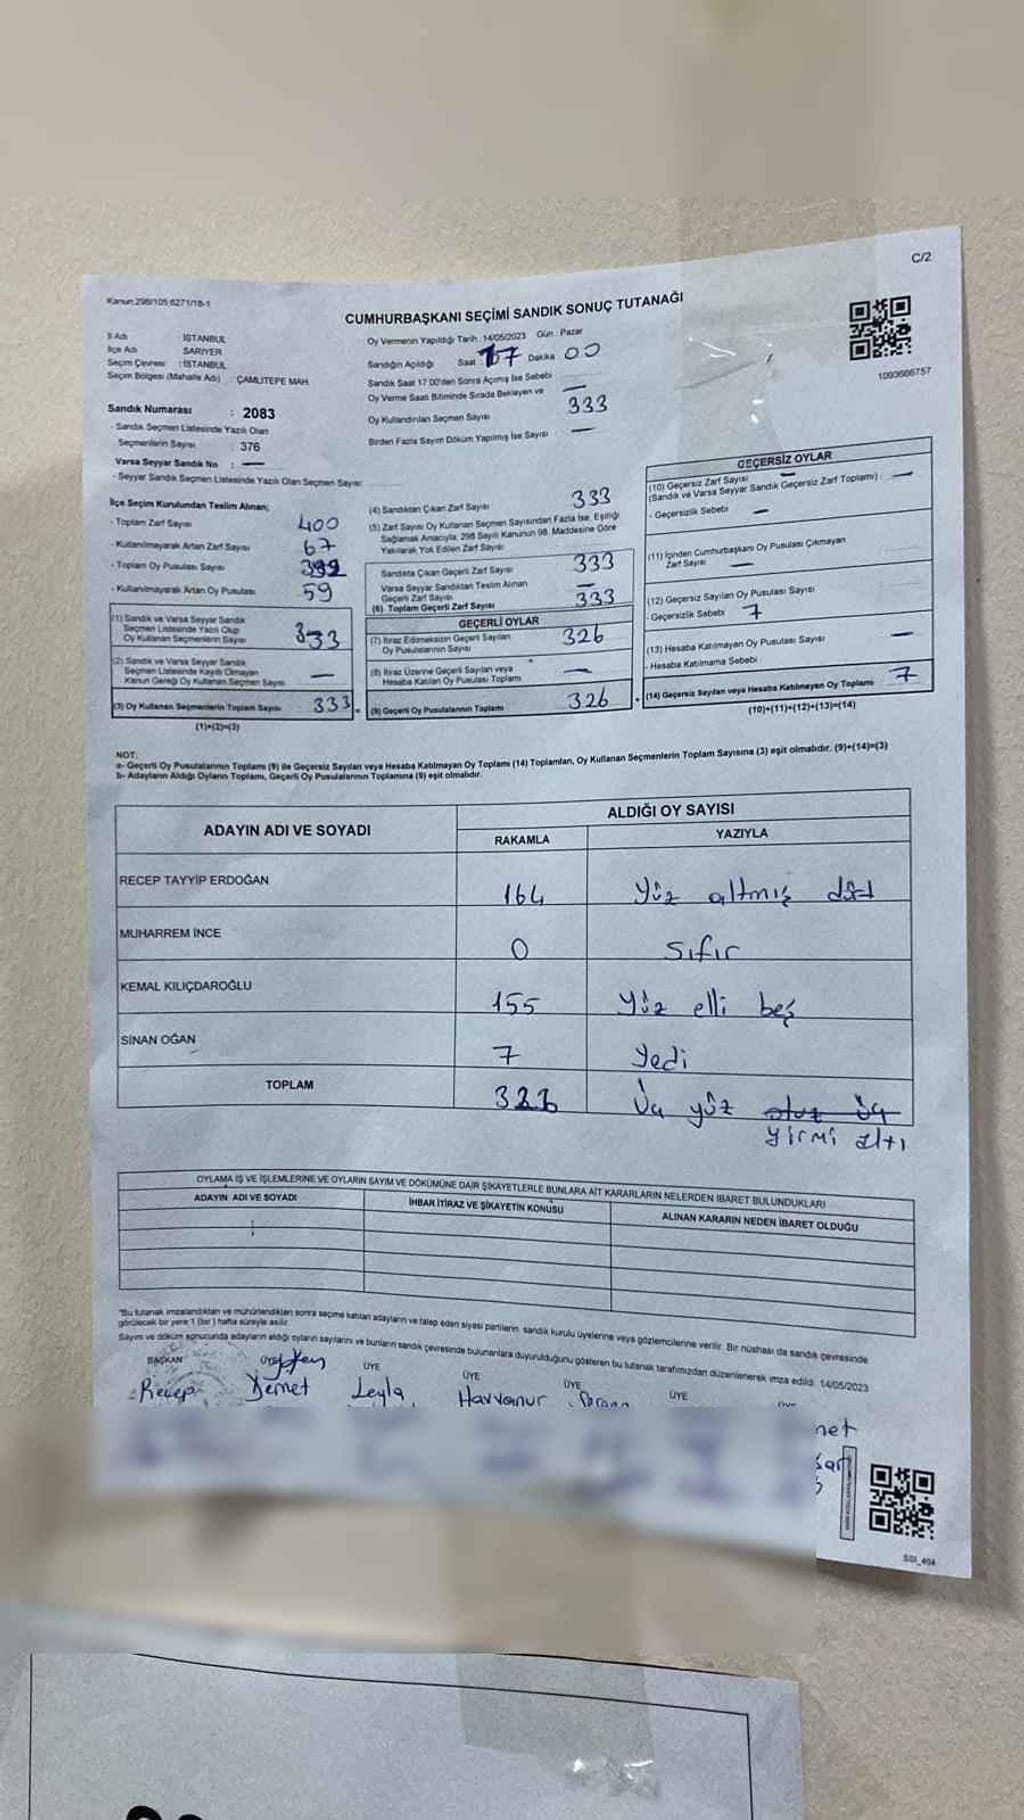 C/2
Kanun:298/105 6271/18-1
CUMHURBAŞKANI SEÇİMİ SANDIK SONUÇ TUTANAĞI
1093666757
İl Adı : İSTANBUL
İlçe Adı : SARIYER
Seçim Çevresi : İSTANBUL
Seçim Bölgesi (Mahalle Adı) : ÇAMLITEPE MAH.
Sandık Numarası : 2083
- Sandık Seçmen Listesinde Yazılı Olan
Seçmenlerin Sayısı : 376
Varsa Seyyar Sandık No : —
- Seyyar Sandık Seçmen Listesinde Yazılı Olan Seçmen Sayısı:
Oy Vermenin Yapıldığı Tarih : 14/05/2023 Gün : Pazar
Sandığın Açıldığı Saat 17 Dakika 00
Sandık Saat 17:00'den Sonra Açılmış İse Sebebi
Oy Verme Saati Bitiminde Sırada Bekleyen ve —
Oy Kullandırılan Seçmen Sayısı 333
Birden Fazla Sayım Döküm Yapılmış İse Sayısı : —
İlçe Seçim Kurulundan Teslim Alınan;
- Toplam Zarf Sayısı 400
- Kullanılmayarak Artan Zarf Sayısı 67
- Toplam Oy Pusulası Sayısı 392
- Kullanılmayarak Artan Oy Pusulası 59
(1) Sandık ve Varsa Seyyar Sandık
Seçmen Listesinde Yazılı Olup
Oy Kullanan Seçmenlerin Sayısı 333
(2) Sandık ve Varsa Seyyar Sandık
Seçmen Listesinde Kayıtlı Olmayan
Kanun Gereği Oy Kullanan Seçmen Sayısı —
(3) Oy Kullanan Seçmenlerin Toplam Sayısı 333
(1)+(2)=(3)
(4) Sandıktan Çıkan Zarf Sayısı 333
(5) Zarf Sayısı Oy Kullanan Seçmen Sayısından Fazla İse, Eşitliği
Sağlamak Amacıyla, 298 Sayılı Kanunun 98. Maddesine Göre
Yakılarak Yok Edilen Zarf Sayısı
Sandıkta Çıkan Geçerli Zarf Sayısı 333
Varsa Seyyar Sandıktan Teslim Alınan
Geçerli Zarf Sayısı —
(6) Toplam Geçerli Zarf Sayısı 333
GEÇERLİ OYLAR
(7) İtiraz Edilmeksizin Geçerli Sayılan
Oy Pusulasının Sayısı 326
(8) İtiraz Üzerine Geçerli Sayılan veya
Hesaba Katılan Oy Pusulası Toplamı —
(9) Geçerli Oy Pusulalarının Toplamı 326
GEÇERSİZ OYLAR
(10) Geçersiz Zarf Sayısı —
(Sandık ve Varsa Seyyar Sandık Geçersiz Zarf Toplamı) : —
- Geçersizlik Sebebi —
(11) İçinden Cumhurbaşkanı Oy Pusulası Çıkmayan
Zarf Sayısı —
(12) Geçersiz Sayılan Oy Pusulası Sayısı
- Geçersizlik Sebebi 7
(13) Hesaba Katılmayan Oy Pusulası Sayısı —
- Hesaba Katılmama Sebebi
(14) Geçersiz Sayılan veya Hesaba Katılmayan Oy Toplamı 7
(10)+(11)+(12)+(13)=(14)
NOT:
a- Geçerli Oy Pusulalarının Toplamı (9) ile Geçersiz Sayılan veya Hesaba Katılmayan Oy Toplamı (14) Toplamları, Oy Kullanan Seçmenlerin Toplam Sayısına (3) eşit olmalıdır. (9)+(14)=(3)
b- Adayların Aldığı Oyların Toplamı, Geçerli Oy Pusulalarının Toplamına (9) eşit olmalıdır.
ADAYIN ADI VE SOYADI
ALDIĞI OY SAYISI
RAKAMLA YAZIYLA
RECEP TAYYİP ERDOĞAN 164 Yüz altmış dört
MUHARREM İNCE 0 Sıfır
KEMAL KILIÇDAROĞLU 155 Yüz elli beş
SİNAN OĞAN 7 Yedi
TOPLAM 326 Üç yüz otuz üç
yirmi altı
OYLAMA İŞ VE İŞLEMLERİNE VE OYLARIN SAYIM VE DÖKÜMÜNE DAİR ŞİKAYETLERLE BUNLARA AİT KARARLARIN NELERDEN İBARET BULUNDUKLARI
ADAYIN ADI VE SOYADI İHBAR İTİRAZ VE ŞİKAYETİN KONUSU ALINAN KARARIN NEDEN İBARET OLDUĞU
"Bu tutanak imzalandıktan ve mühürlendikten sonra seçime katılan adayların ve talep eden siyasi partilerin sandık kurulu üyelerine veya gözlemcilerine verilir. Bir nüshası da sandık çevresinde
görülecek bir yere 1 (bir) hafta süreyle asılır.
Sayım ve döküm sonucunda adayların aldığı oyların sayılarını ve bunların sandık çevresinde bulunanlara duyurulduğunu gösteren bu tutanak tarafımızdan düzenlenerek imza edildi. 14/05/2023
BAŞKAN ÜYE ÜYE ÜYE ÜYE
Recep Demet Leyla Havvanur
net
SSI_404